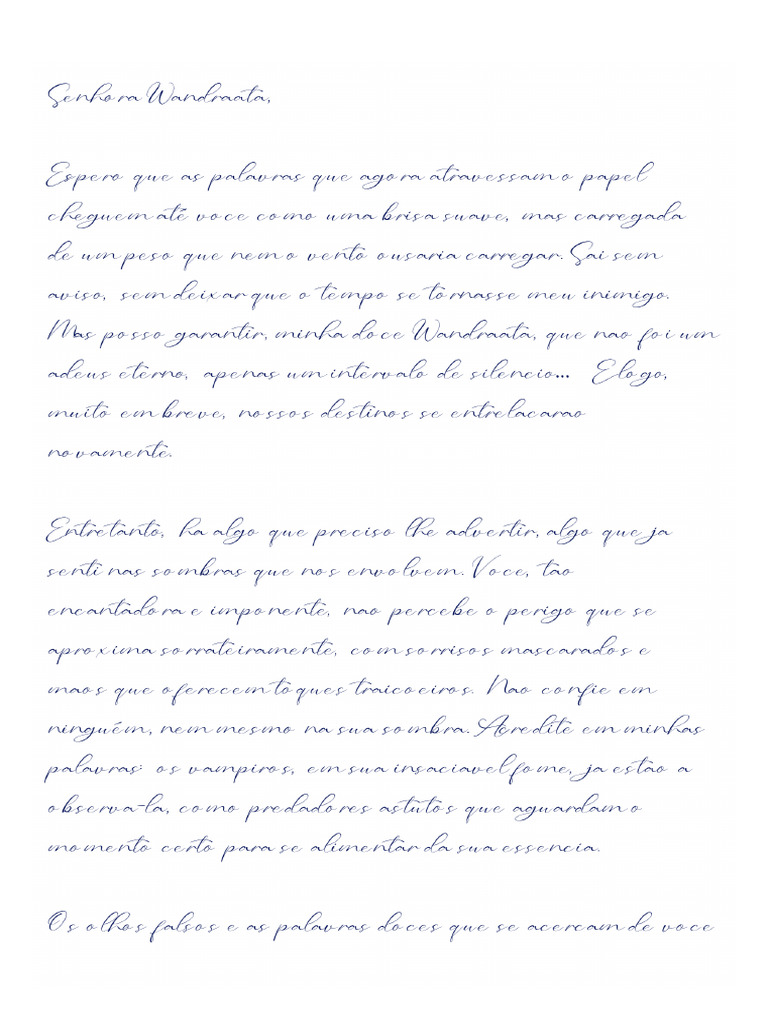 Senhora Wandraata,
Espero que as palavras que agora atravessam o papel
cheguem até voce como uma brisa suave, mas carregada
de um peso que nem o vento ousaria carregar. Sai sem
aviso, sem deixar que o tempo se tornasse meu inimigo.
Mas posso garantir, minha doce Wandraata, que nao foi um
adeus eterno, apenas um intervalo de silencio... E logo,
muito em breve, nossos destinos se entrelacarao
novamente.
Entretanto, ha algo que preciso lhe advertir, algo que ja
senti nas sombras que nos envolvem. Voce, tao
encantadora e imponente, nao percebe o perigo que se
aproxima sorrateiramente, com sorrisos mascarados e
maos que oferecem toques traicoeiros. Nao confie em
ninguém, nem mesmo na sua sombra. Acredite em minhas
palavras: os vampiros, em sua insaciavel fome, ja estao a
observa-la, como predadores astutos que aguardam o
momento certo para se alimentar da sua essencia.
Os olhos falsos e as palavras doces que se acercam de voce